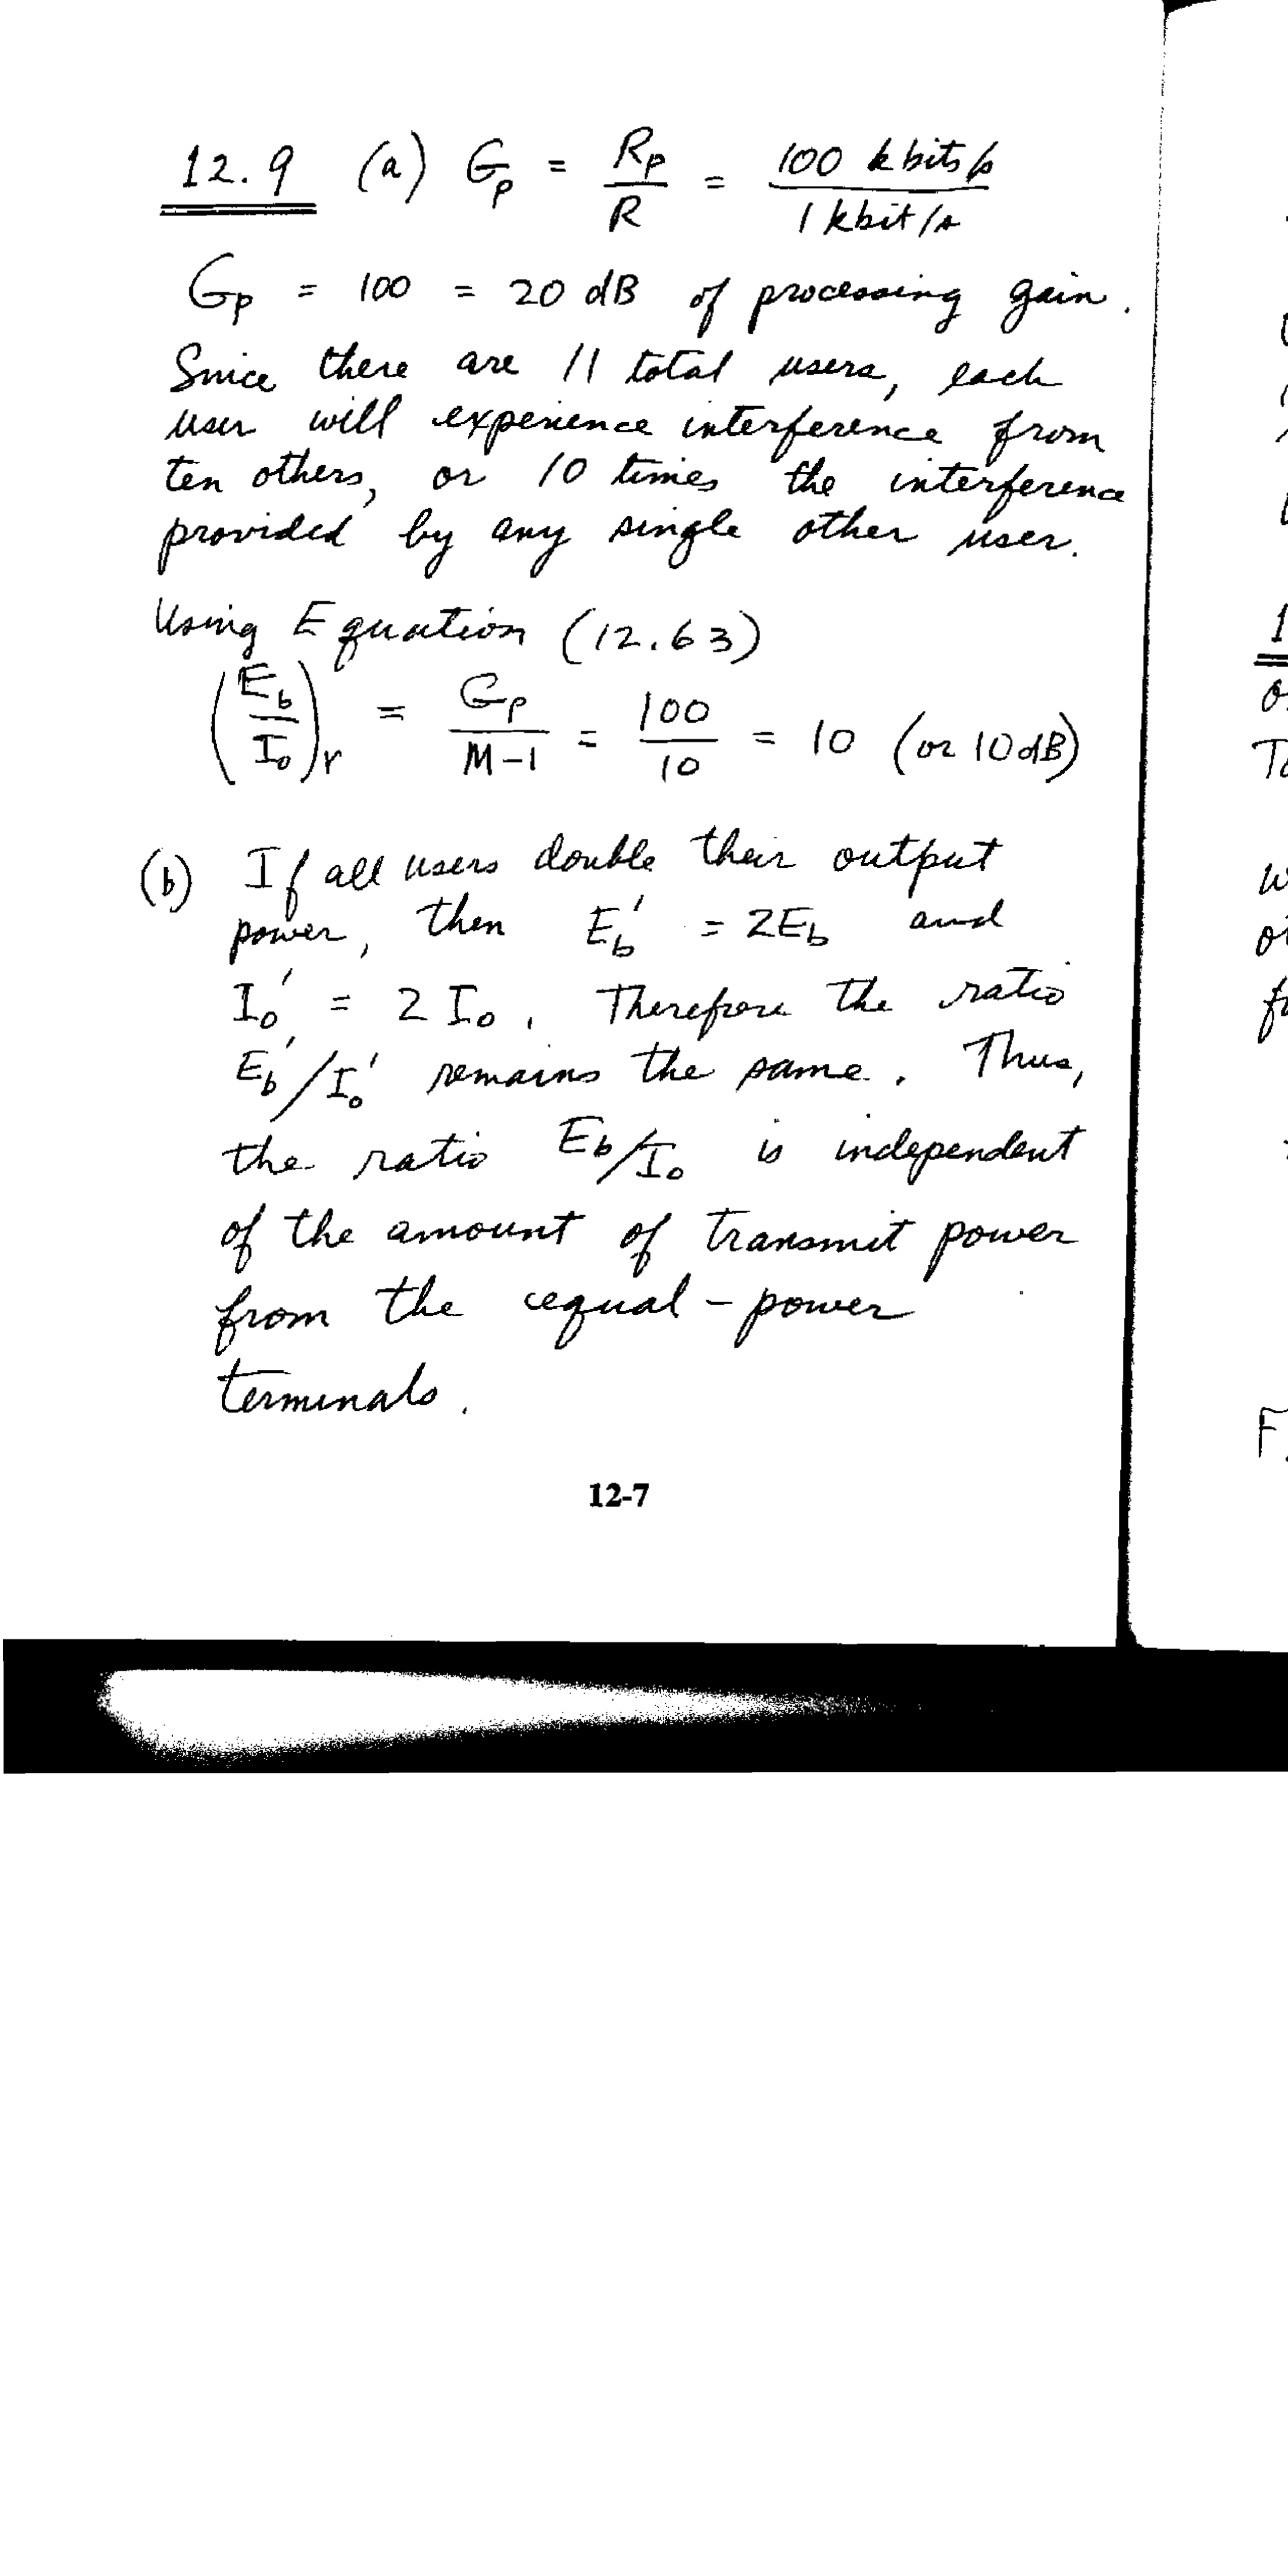 12.9 (a) Gp = Rp / R = 100 kbits/s / 1 kbit/s
Gp = 100 = 20 dB of processing gain.
Since there are 11 total users, each
user will experience interference from
ten others, or 10 times the interference
provided by any single other user.
Using Equation (12.63)
(Eb/I0)r = Gp/(M-1) = 100/10 = 10 (or 10 dB)
(b) If all users double their output
power, then Eb' = 2Eb and
I0' = 2 I0. Therefore the ratio
Eb'/I0' remains the same. Thus,
the ratio Eb/I0 is independent
of the amount of transmit power
from the equal-power
terminals.
12-7